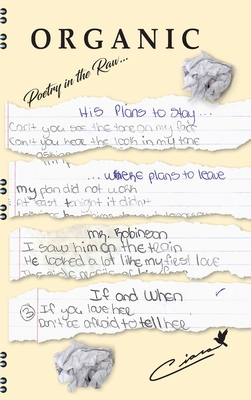 ORGANIC
Poetry in the Raw...
His Plans to Stay...
Can't you see the tone on my face
Can't you hear the look in my tone
...where plans to leave
my plan did not work
At least tonight it didn't
Mr. Robinson
I saw him on the train
He looked a lot like my first love
If and When
3 If you love her
Don't be afraid to tell her
Ciara